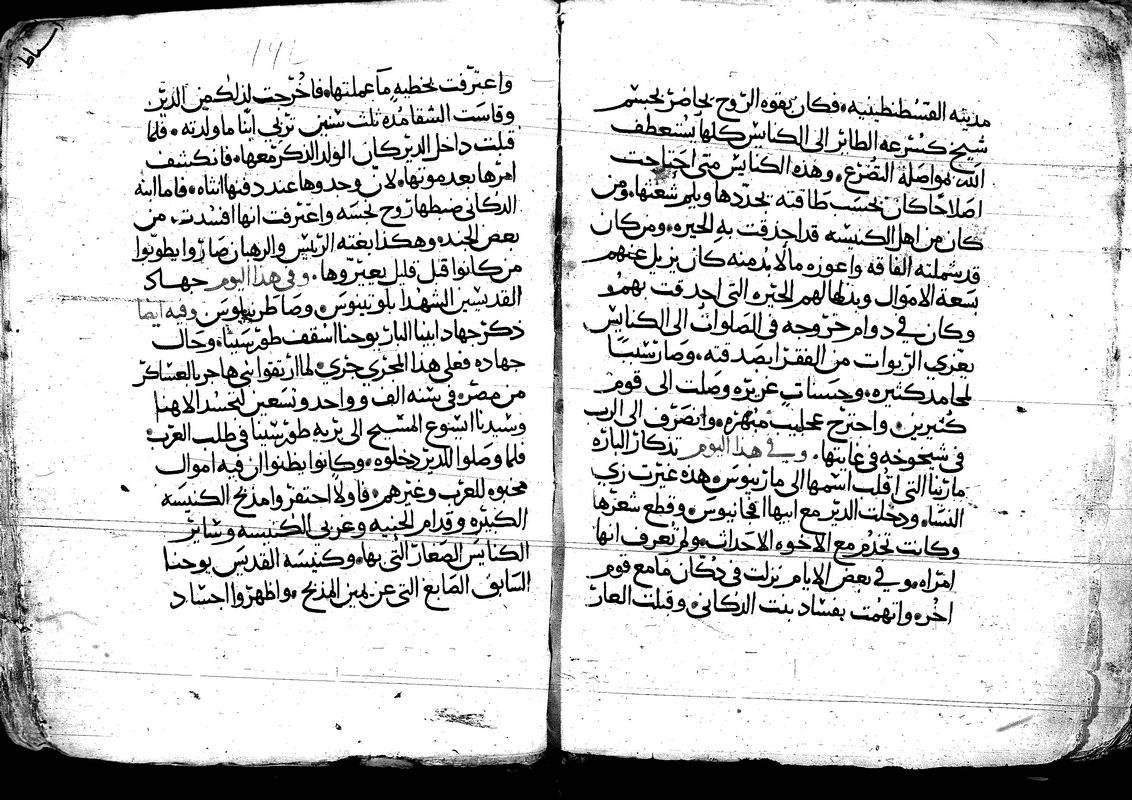 مدينه القسطنطينيه • فكان بقوه الروح يحاضر بجسم
شيخ كسرعه الطائر الى الكنايس كلها يستعطف
الله بمواصلة التضرع • وهذه الكنايس متى احتاجت
اصلاحا كان بحسب طاقته يجددها ويلم شعثها • ومن
كان من اهل الكنيسه قد احدقت به الحيره • ومن كان
قد شملته الفاقه واعوزه ما لا بد منه كان يزيل عنهم
بسعة الاموال وبذلها لهم الحيره التي احدقت بهم
وكان في دوام خروجه في الصلوات الى الكنايس
يعزي الربوات من الفقرا بصدقته • وصار سببا
لمحامد كثيره • وحسنات غزيره وصلت الى قوم
كثيرين • واجترح عجايب مبهره • وانصرف الى الرب
في شيخوخه في غايتها • وفي هذا اليوم تدكار الباره
مارينا التي اقلب اسمها الى مارينوس • هذه غيرت زي
النساء • ودخلت الدير مع ابيها اوجانيوس • وقطع شعرها
وكانت تخدم مع الاخوه الاحداث • ولم تعرف انها
امراه • وفي بعض الايام نزلت في دكان ما مع قوم
اخر • واتهمت بفساد بنت الدكاني • وقبلت العار
١٩٤
واعترفت بخطيه ما عملتها • فاخرجت لذلك من الدير
وقاست الشقا مده ثلث سنين تربي ابنا ما ولدته • فلما
قبلت داخل الدير كان الولد الذكر معها • فانكشف
امرها بعد موتها • لان وجدوها عند دفنها انثاه • فاما ابنه
الدكاني ضبطها روح نجسه واعترفت انها افسدت • من
بعض الجند • وهكذا بغته الريس والرهبان صاروا يطوبوا
من كانوا قبل قليل يعيروها • وفي هذا اليوم جهاد
القديسين الشهدا بلوتينوس • وصاطرنيلوس وفيه ايضا
ذكر جهاد ابينا البار يوحنا اسقف طورسينا • وحال
جهاده فعلى هذا المجرى جرى • لما ارتقوا بني هاجر بالعساكر
من مصر • في سنه الف وواحد وتسعين لتجسد الاهنا
وسيدنا ايسوع المسيح الى بريه طورسينا في طلب العرب
فلما وصلوا للدير دخلوه • وكانوا يظنوا ان فيه اموال
مخبوه للعرب وغيرهم • فاولا احتفروا مذبح الكنيسه
الكبيره وقدام الحنيه وغربي الكنيسه وساير
الكنايس الصغار التي بها • وكنيسه القديس يوحنا
السابق الصابغ التي عن يمين المذبح • واظهروا اجساد